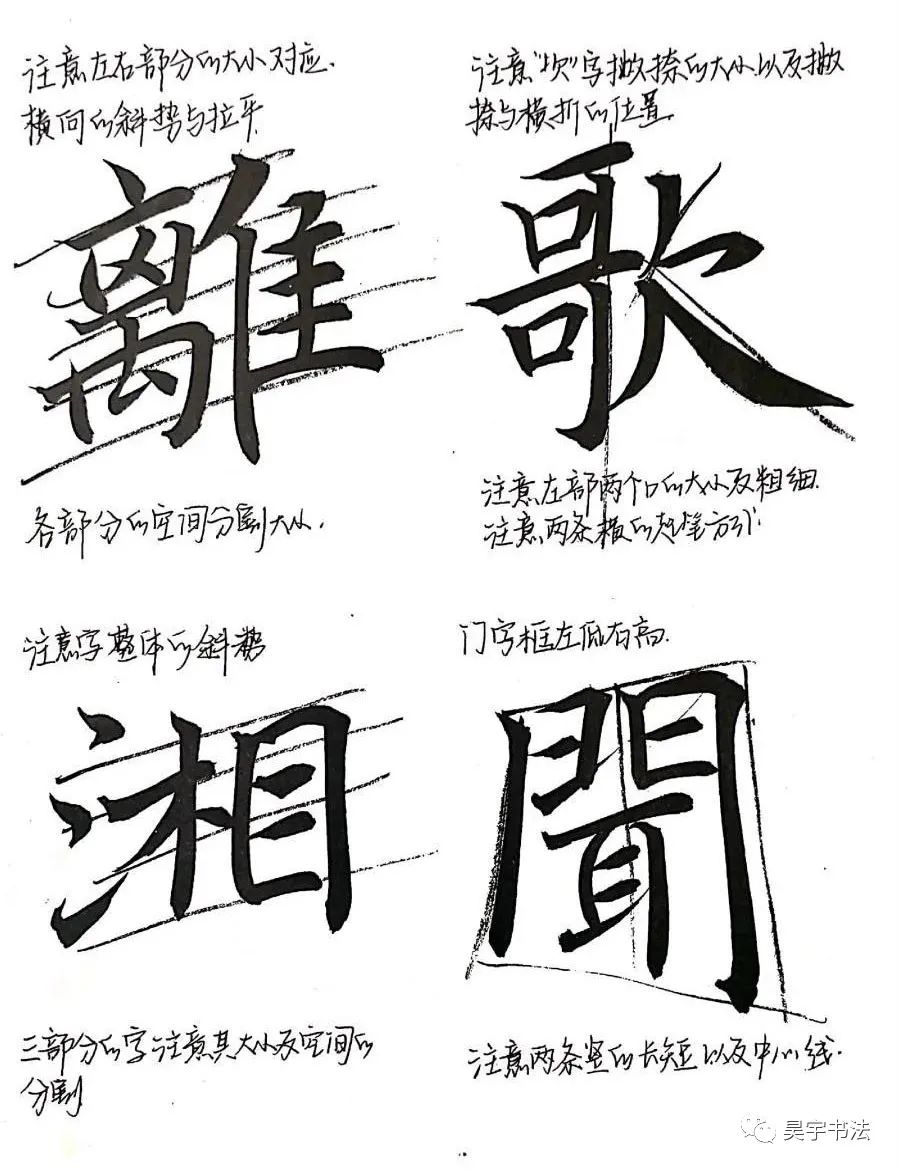 注意左右部分的大小对应.
横向的斜势与拉平
離
各部分的空间分割大小.
注意“欠”字撇捺的大小以及撇
捺与横折的位置.
歌
注意左部两个口的大小及粗细.
注意两条横的起笔方式.
注意字整体的斜势
湘
三部分的字注意其大小及空间的
分割
门字框左低右高.
聞
注意两条竖的长短以及中心线.
昊宇书法